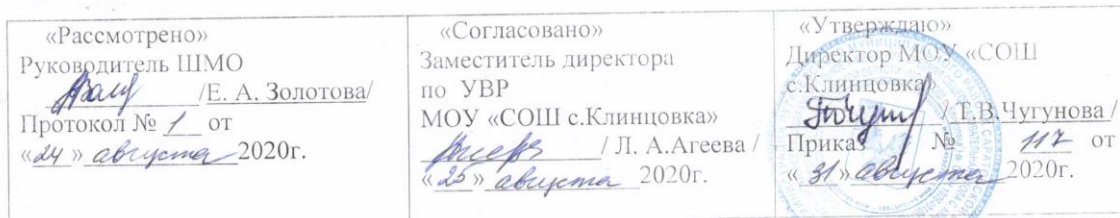 «Рассмотрено»
Руководитель ШМО
/Е. А. Золотова/
Протокол № 1 от
«24» августа 2020г.
«Согласовано»
Заместитель директора
по УВР
МОУ «СОШ с.Клинцовка»
/ Л. А.Агеева /
«25» августа 2020г.
«Утверждаю»
Директор МОУ «СОШ
с.Клинцовка»
/ Т.В.Чугунова /
Приказ № 117 от
«31» августа 2020г.